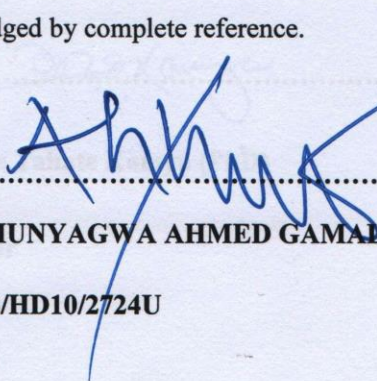 dged by complete reference.
UNYAGWA AHMED GAMAL
/HD10/2724U